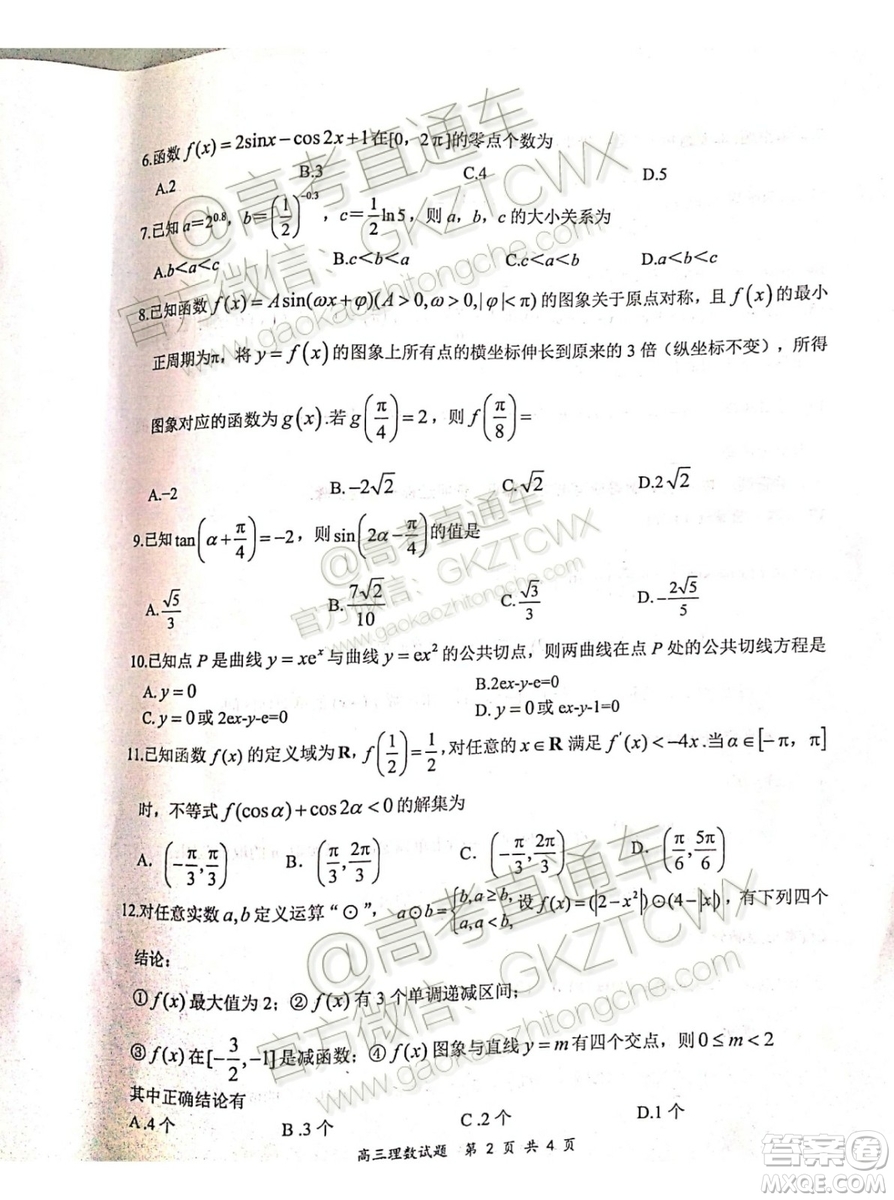 6.函数 f(x)=2sinx-cos2x+1在[0, 2π]的零点个数为
A.2 B.3 C.4 D.5
7.已知 a=2^{0.8}, b=(1/2)^{-0.3}, c=1/2 ln5, 则 a, b, c 的大小关系为
A.b<a<c B.c<b<a C.b<c<a D.a<b<c
8.已知函数 f(x)=Asin(ωx+φ)(A>0,ω>0,|φ|<π) 的图象关于原点对称，且 f(x) 的最小
正周期为π，将 y=f(x) 的图象上所有点的横坐标伸长到原来的 3 倍（纵坐标不变），所得
图象对应的函数为 g(x).若 g(π/4)=2，则 f(π/8)=
A.-2 B.-2√2 C.√2 D.2√2
9.已知 tan(α+π/4)=-2，则 sin(2α-π/4) 的值是
A.√5/3 B.7√2/10 C.√3/3 D.-2√5/5
10.已知点 P 是曲线 y=xe^x 与曲线 y=ex² 的公共切点，则两曲线在点 P 处的公共切线方程是
A.y=0 B.2ex-y-e=0
C.y=0 或 2ex-y-e=0 D.y=0 或 ex-y-1=0
11.已知函数 f(x) 的定义域为 R, f(1/2)=1/2, 对任意的 x∈R 满足 f'(x)<-4x.当 α∈[-π, π]
时，不等式 f(cosα)+cos2α<0 的解集为
A. (-π/3, π/3) B. (π/3, 2π/3) C. (-π/3, 2π/3) D. (π/6, 5π/6)
12.对任意实数 a,b 定义运算“⊙”, a⊙b={b,a≥b, a,a<b, 设 f(x)=(|2-x²|)⊙(4-|x|), 有下列四个
结论：
①f(x) 最大值为 2；②f(x) 有 3 个单调递减区间；
③f(x) 在[-3/2,-1]是减函数；④f(x) 图象与直线 y=m 有四个交点，则 0≤m<2
其中正确结论有
A.4 个 B.3 个 C.2 个 D.1 个
高三理数试题 第 2 页 共 4 页
@高考直通车
官方微信：GKZTCWX
www.gaokaozhitongche.com
@高考直通车
官方微信：GKZTCWX
www.gaokaozhitongche.com
@高考直通车
官方微信：GKZTCWX
www.gaokaozhitongche.com
答案圈
MXQE.COM